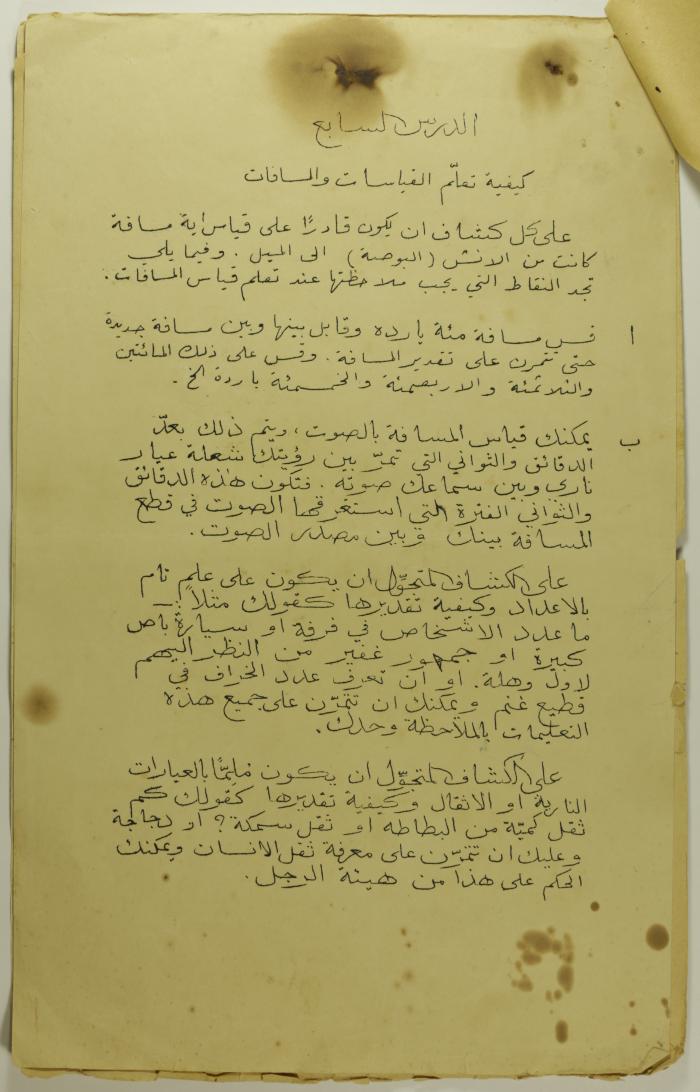 الدرس السابع
كيفية تعلّم القياسات والمسافات
على كل كشاف ان يكون قادرًا على قياس اية مسافة
كانت من الانش (البوصة) الى الميل. وفيما يلي
تجد النقاط التي يجب ملاحظتها عند تعلم قياس المسافات.
ا قس مسافة مئة يارده وقابل بينها وبين مسافة جديدة
حتى تتمرن على تقدير المسافة. وقس على ذلك المائتين
والثلاثمئة والاربعمئة والخمسمئة ياردة الخ.
ب يمكنك قياس المسافة بالصوت، ويتم ذلك بعدّ
الدقائق والثواني التي تمرّ بين رؤيتك شعلة عيار
ناري وبين سماعك صوته. فتكون هذه الدقائق
والثواني الفترة التي استغرقها الصوت في قطع
المسافة بينك وبين مصدر الصوت.
على الكشاف المتجوّل ان يكون على علم تام
بالاعداد وكيفية تقديرها كقولك مثلاً :-
ما عدد الاشخاص في فرقة او سيارة باص
كبيرة او جمهور غفير من النظر اليهم
لاول وهلة. او ان تعرف عدد الخراف في
قطيع غنم ويمكنك ان تتمرّن على جميع هذه
التعليمات بالملاحظة وحدك.
على الكشاف المتجوّل ان يكون ملمًّا بالعيارات
النارية او الاثقال وكيفية تقديرها كقولك كم
ثقل كميّة من البطاطه او ثقل سمكة؟ او دجاجة
وعليك ان تتمرّن على معرفة ثقل الانسان ويمكنك
الحكم على هذا من هيئة الرجل.